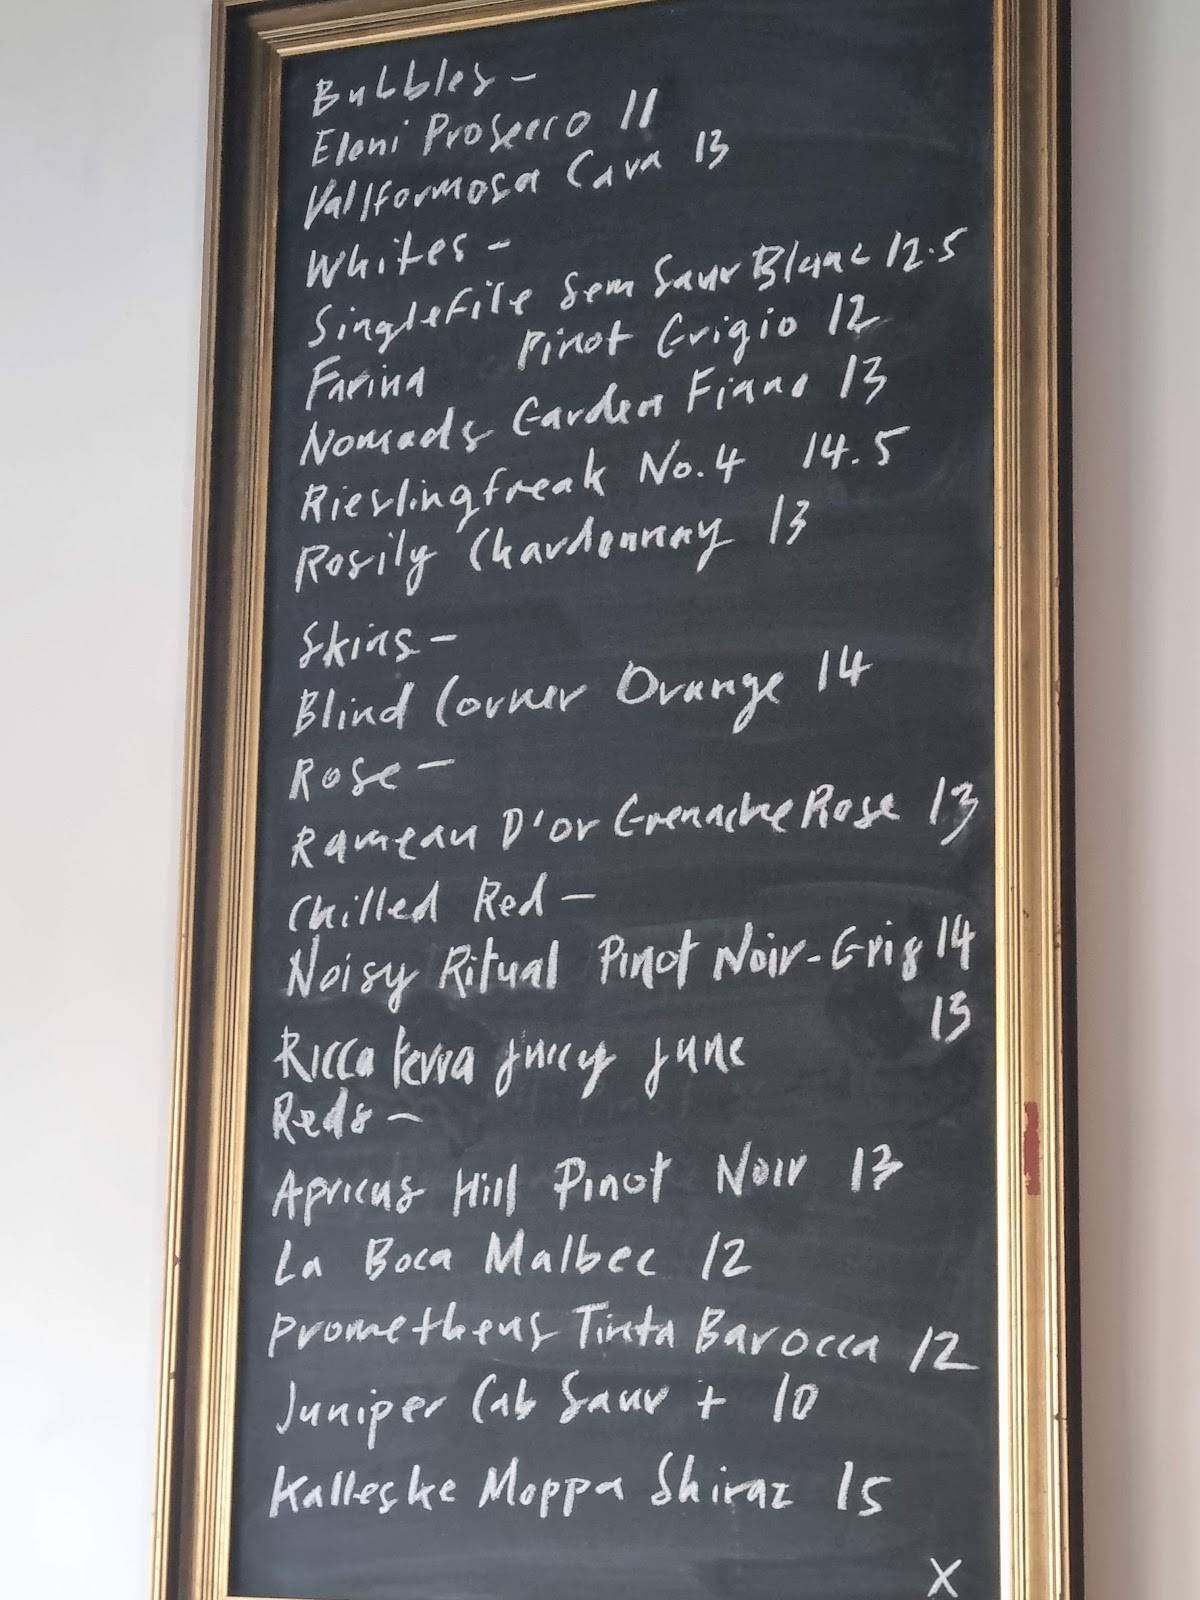 Bubbles -
Eleni Prosecco 11
Vallformosa Cava 13
Whites -
Singlefile Sem Sauv Blanc 12.5
Farina Pinot Grigio 12
Nomads Garden Fiano 13
Rieslingfreak No.4 14.5
Rosily Chardonnay 13
Skins -
Blind Corner Orange 14
Rose -
Rameau D'or Grenache Rose 13
Chilled Red -
Noisy Ritual Pinot Noir-Gris 14
Ricca terra juicy june 13
Reds -
Apricus Hill Pinot Noir 13
La Boca Malbec 12
Prometheus Tinta Barocca 12
Juniper Cab Sauv + 10
Kalleske Moppa Shiraz 15
X